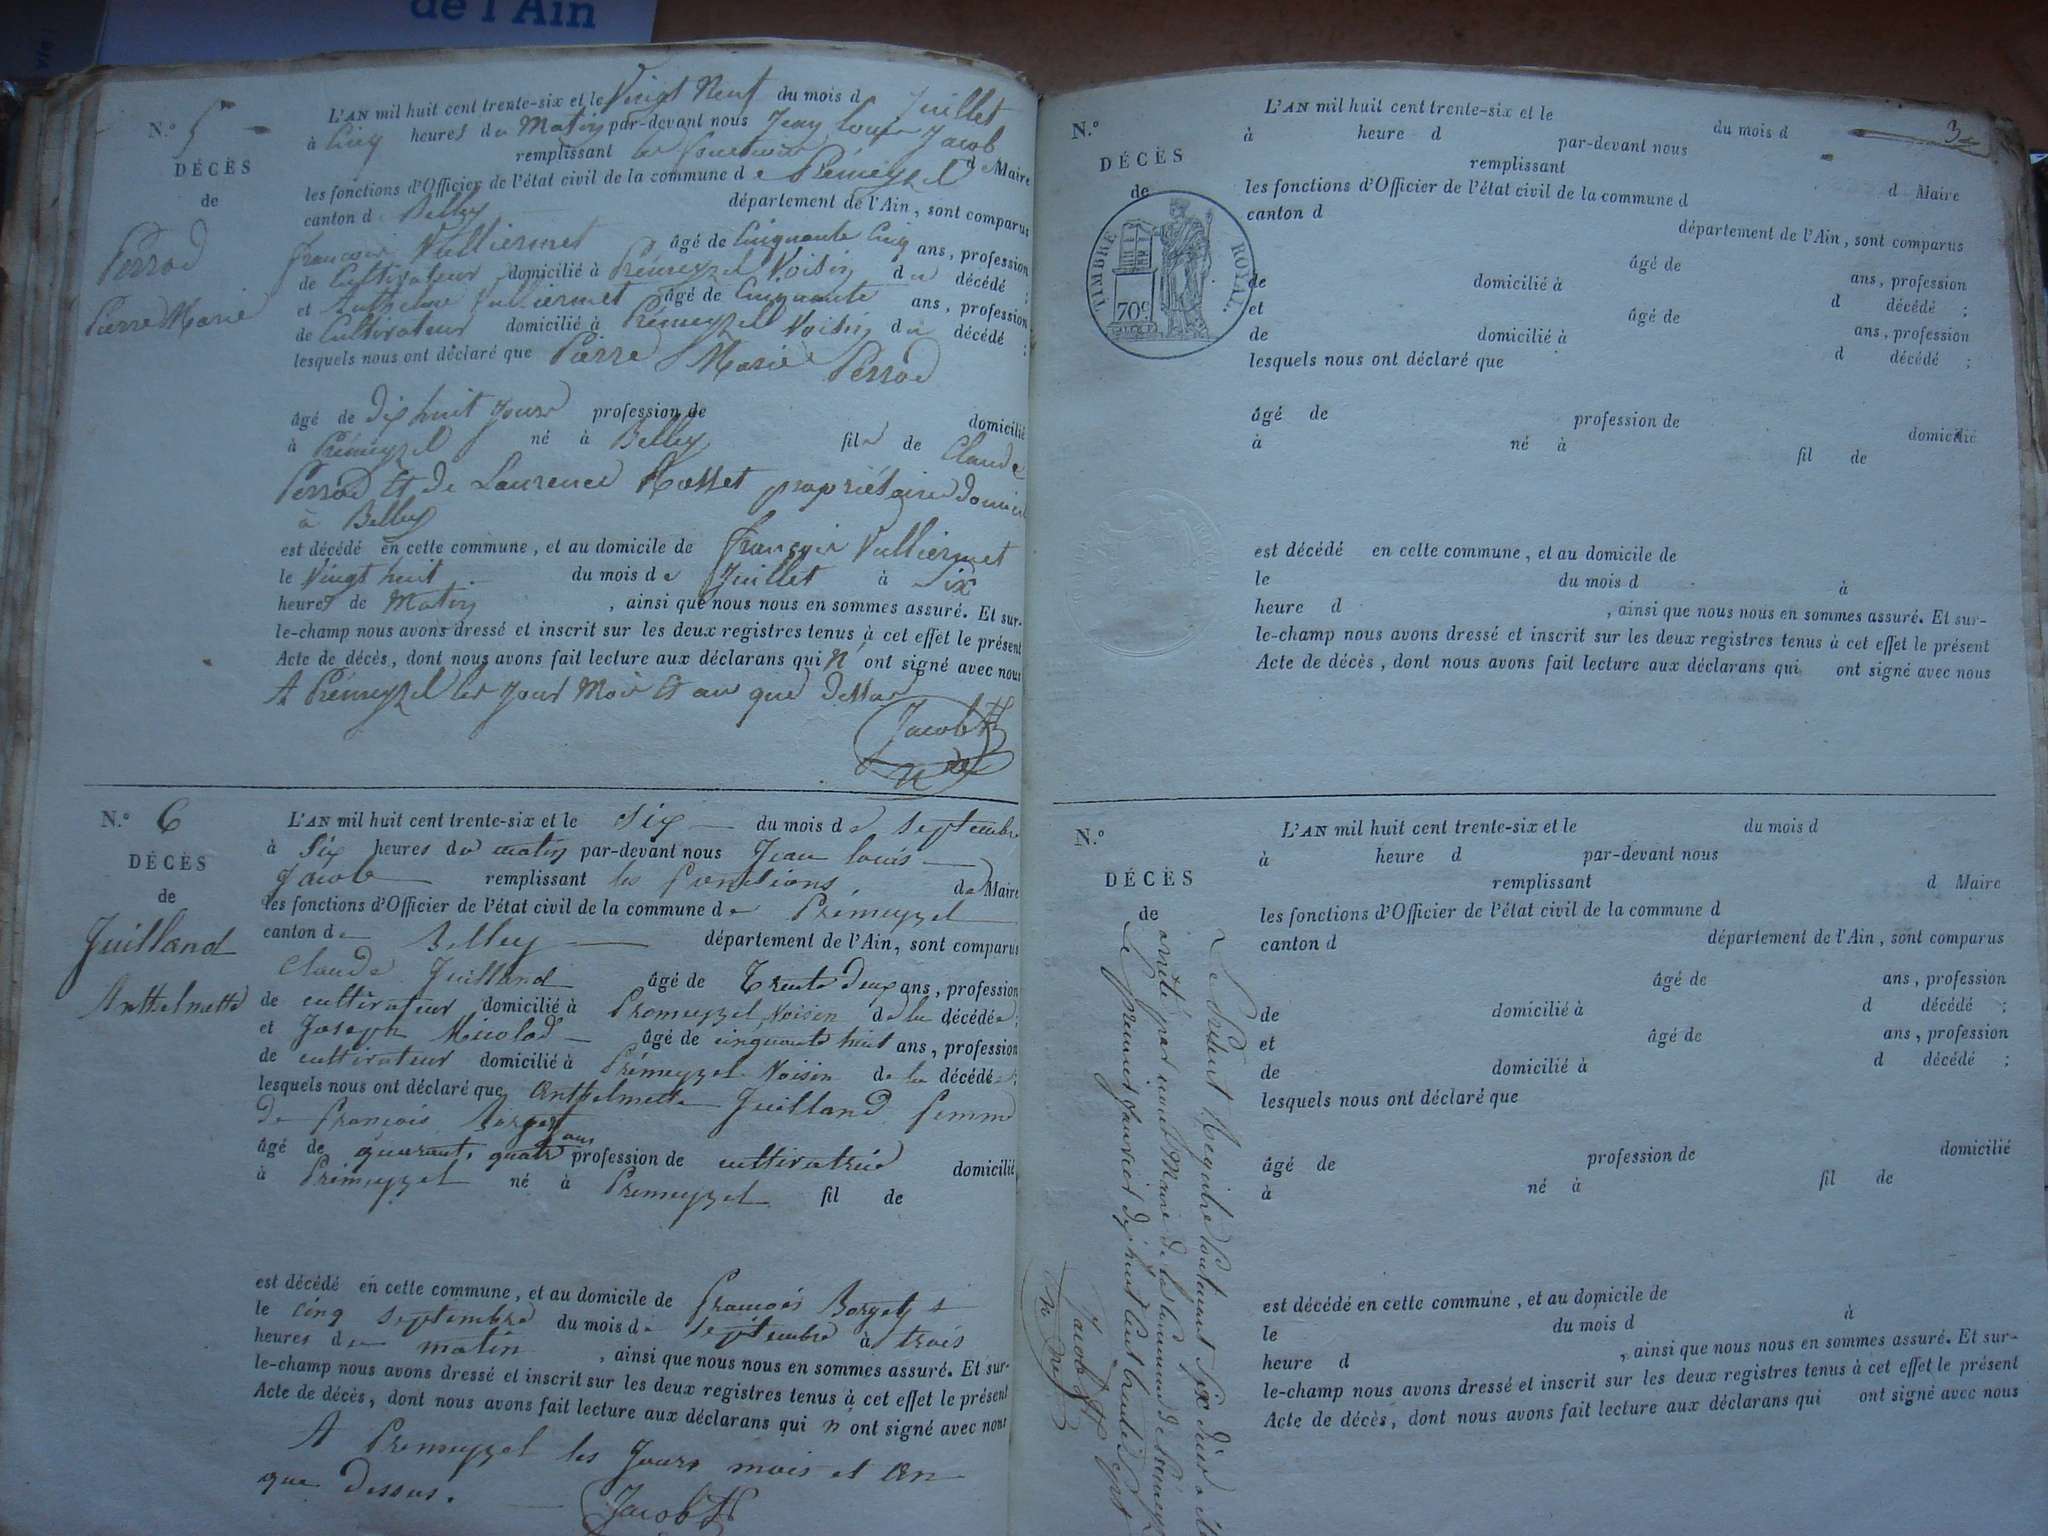 de l'Ain
N.° 5
DÉCÈS
de
Perrod
Pierre Marie
L'AN mil huit cent trente-six et le Vingt Neuf du mois d Juillet
à Cinq heures du Matin par-devant nous Jean Louis Jacob
remplissant les fonctions de Maire
les fonctions d'Officier de l'état civil de la commune de Prémeyzel
canton de Belley département de l'Ain, sont comparus
François Vulliermet âgé de Cinquante Cinq ans, profession
de Cultivateur domicilié à Prémeyzel Voisin du décédé ;
et Anthelme Vulliermet âgé de Cinquante ans, profession
de Cultivateur domicilié à Prémeyzel Voisin du décédé ;
lesquels nous ont déclaré que Pierre Marie Perrod
âgé de dix huit Jours profession de domicilié
à Prémeyzel né à Belley fils de Claude
Perrod Et de Laurence Rosset propriétaires
à Belley
est décédé en cette commune, et au domicile de François Vulliermet
le Vingt huit du mois de Juillet à Six
heures de Matin, ainsi que nous nous en sommes assuré. Et sur-
le-champ nous avons dressé et inscrit sur les deux registres tenus à cet effet le présent
Acte de décès, dont nous avons fait lecture aux déclarans qui n'ont signé avec nous
A Prémeyzel les Jour Mois Et an que dessus
Jacob
N.° 6
DÉCÈS
de
Juilland
Anthelmette
L'AN mil huit cent trente-six et le Six du mois de septembre
à Six heures du matin par-devant nous Jean louis
Jacob remplissant les fonctions, de Maire
les fonctions d'Officier de l'état civil de la commune de Premeyzel
canton de Belley département de l'Ain, sont comparus
Claude Juilland âgé de Trente deux ans, profession
de cultivateur domicilié à Premeyzel Voisin de la décédée ;
et Joseph âgé de cinquante huit ans, profession
de cultivateur domicilié à Prémeyzel Voisin de la décédée ;
lesquels nous ont déclaré que Anthelmette Juilland femme
de françois
âgé de quarante quatre ans profession de cultivatrice domicilié
à Prémeyzel né à Premeyzel fil de
est décédé en cette commune, et au domicile de françois
le cinq septembre du mois de septembre à trois
heures du matin, ainsi que nous nous en sommes assuré. Et sur-
le-champ nous avons dressé et inscrit sur les deux registres tenus à cet effet le présent
Acte de décès, dont nous avons fait lecture aux déclarans qui n ont signé avec nous
A Premeyzel les Jours mois et an
que dessus.
Jacob
3
N.°
DÉCÈS
de
TIMBRE ROYAL.
70c
L'AN mil huit cent trente-six et le du mois d
à heure d par-devant nous
remplissant d Maire
les fonctions d'Officier de l'état civil de la commune d
canton d département de l'Ain, sont comparus
âgé de ans, profession
de domicilié à d décédé ;
et âgé de ans, profession
de domicilié à d décédé ;
lesquels nous ont déclaré que
âgé de profession de domicilié
à né à fil de
est décédé en cette commune, et au domicile de
le du mois d à
heure d , ainsi que nous nous en sommes assuré. Et sur-
le-champ nous avons dressé et inscrit sur les deux registres tenus à cet effet le présent
Acte de décès, dont nous avons fait lecture aux déclarans qui ont signé avec nous
N.°
DÉCÈS
de
L'AN mil huit cent trente-six et le du mois d
à heure d par-devant nous
remplissant d Maire
les fonctions d'Officier de l'état civil de la commune d
canton d département de l'Ain, sont comparus
âgé de ans, profession
de domicilié à d décédé ;
et âgé de ans, profession
de domicilié à d décédé ;
lesquels nous ont déclaré que
âgé de profession de domicilié
à né à fil de
est décédé en cette commune, et au domicile de
le du mois d à
heure d , ainsi que nous nous en sommes assuré. Et sur-
le-champ nous avons dressé et inscrit sur les deux registres tenus à cet effet le présent
Acte de décès, dont nous avons fait lecture aux déclarans qui ont signé avec nous
Le Présent Régistre Contenant Six
arrêté par nous Maire de la Commune de Prémeyzel
Le premier Janvier dix huit Cent trente Sept
Jacob